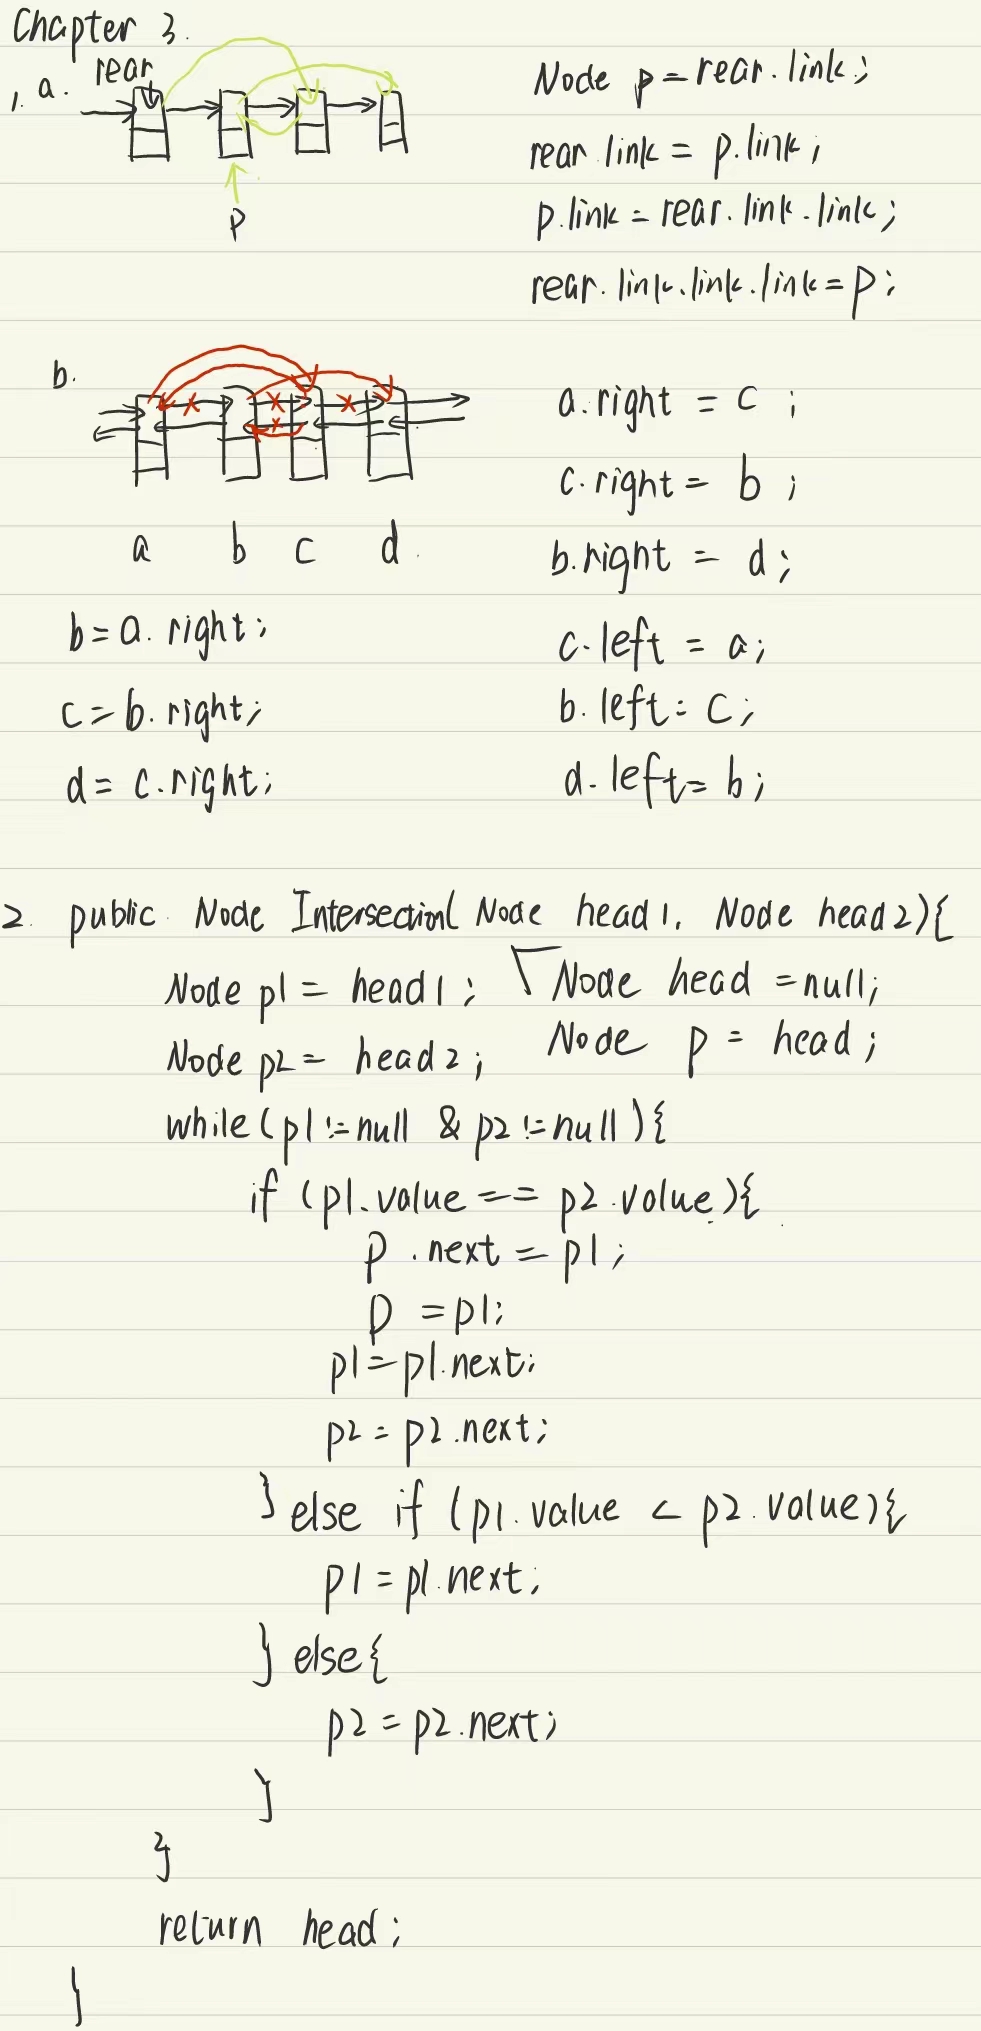 Chapter 3.
1. a. rear
p
Node p = rear.link;
rear.link = p.link;
p.link = rear.link.link;
rear.link.link.link = p;
b.
a b c d.
b = a.right;
c = b.right;
d = c.right;
a.right = c;
c.right = b;
b.right = d;
c.left = a;
b.left = c;
d.left = b;
2. public Node Intersection(Node head1, Node head2){
Node p1 = head1; Node head = null;
Node p2 = head2; Node p = head;
while(p1!=null & p2!=null){
if (p1.value == p2.value){
p.next = p1;
p = p1;
p1 = p1.next;
p2 = p2.next;
} else if (p1.value < p2.value){
p1 = p1.next;
} else{
p2 = p2.next;
}
}
return head;
}